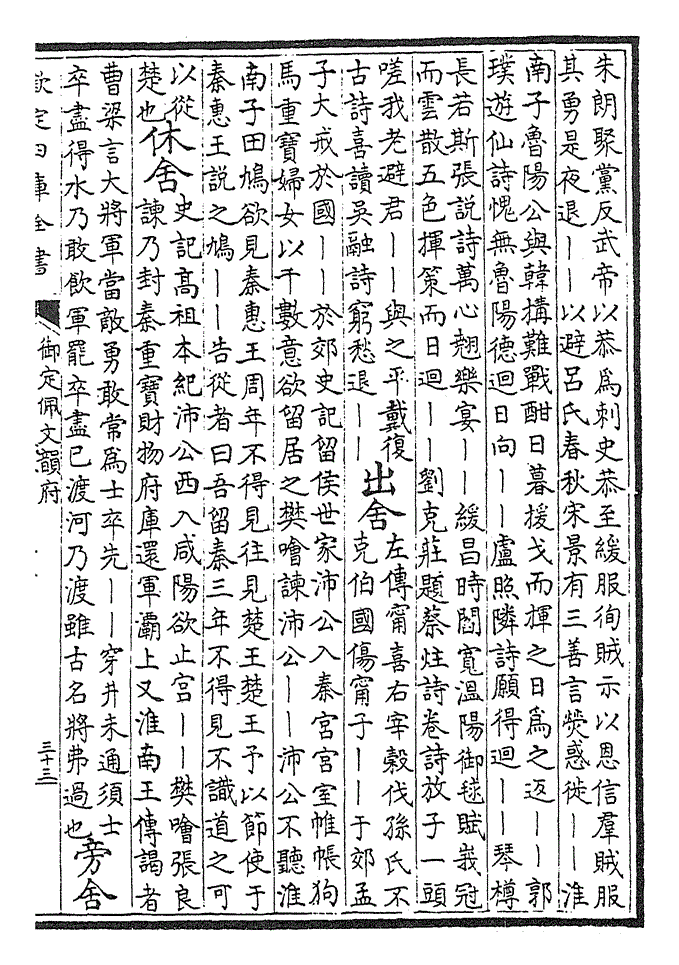 朱朗聚黨反武帝以恭爲刺史恭至緩服徇賊示以恩信羣賊服
其勇是夜退丨丨以避呂氏春秋宋景有三善言熒惑徙丨丨淮
南子魯陽公與韓搆難戰酣日暮援戈而揮之日爲之返丨丨郭
璞遊仙詩愧無魯陽德迴日向丨丨盧照隣詩願得迴丨丨琴樽
長若斯張説詩萬心翹樂宴丨丨緩昌時閻寬溫陽御毬賦峩冠
而雲散五色揮策而日迴丨丨劉克莊題蔡炷詩卷詩放子一頭
嗟我老避君丨丨與之平戴復
古詩喜讀吳融詩窮愁退丨丨
出舍
左傳甯喜右宰穀伐孫氏不
克伯國傷甯子丨丨于郊孟
子大戒於國丨丨於郊史記留侯世家沛公入秦宮宮室帷帳狗
馬重寶婦女以千數意欲留居之樊噲諫沛公丨丨沛公不聽淮
南子田鳩欲見秦惠王周年不得見往見楚王楚王予以節使于
秦惠王説之鳩丨丨告從者曰吾留秦三年不得見不識道之可
以從
楚也
休舍
史記高祖本紀沛公西入咸陽欲止宮丨丨樊噲張良
諫乃封秦重寶財物府庫還軍灞上又淮南王傳謁者
曹梁言大將軍當敵勇敢常爲士卒先丨丨穿井未通須士
卒盡得水乃敢飲軍罷卒盡已渡河乃渡雖古名將弗過也
旁舍
欽定四庫全書
御定佩文韻府
三十三